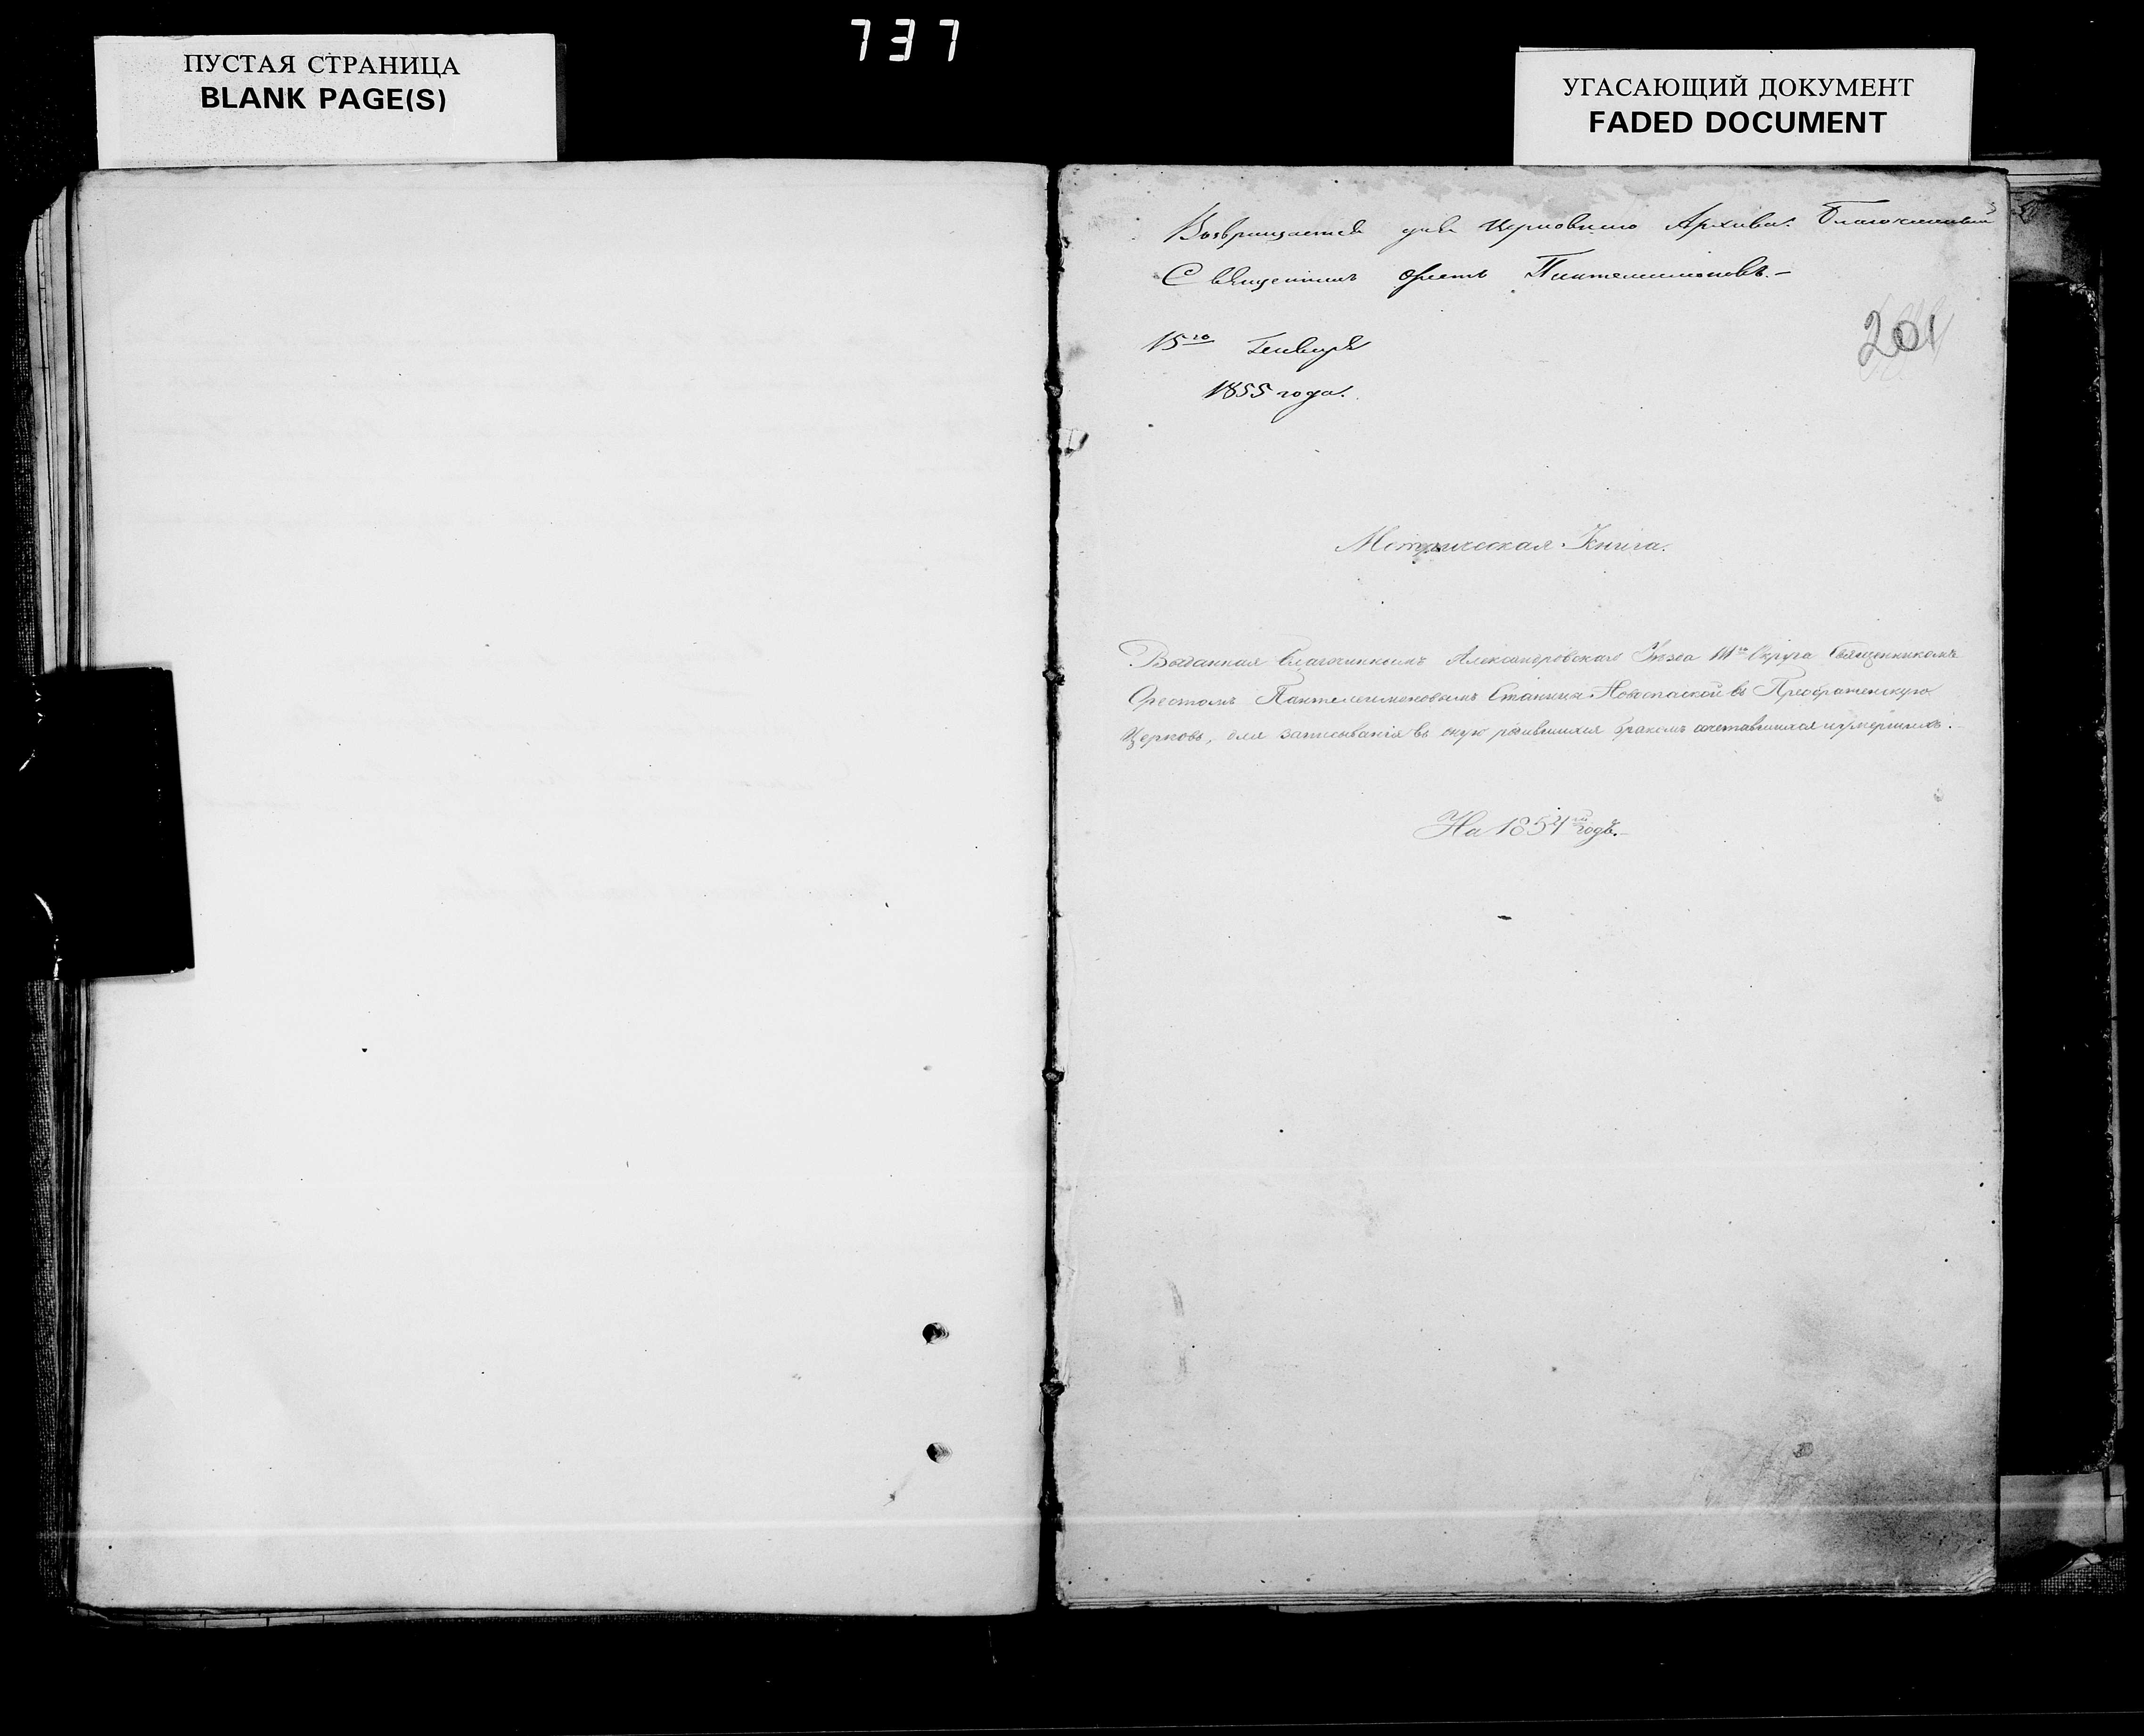 737
ПУСТАЯ СТРАНИЦА
BLANK PAGE(S)
УГАСАЮЩИЙ ДОКУМЕНТ
FADED DOCUMENT
Возвращается для Церковнаго Архива. Благочинный
Священникъ Орестъ Пантелеимоновъ.—
15го Генваря
1855 года.
201
Метрическая Книга.
Выданная Благочиннымъ Александровскаго Уѣзда Священникомъ
Орестомъ Пантелеимоновымъ Станицы Новоспаской въ Преображенскую
Церковь, для записыванія въ оную родившихся бракомъ сочетавшихся и умершихъ.
На 1854й годъ.